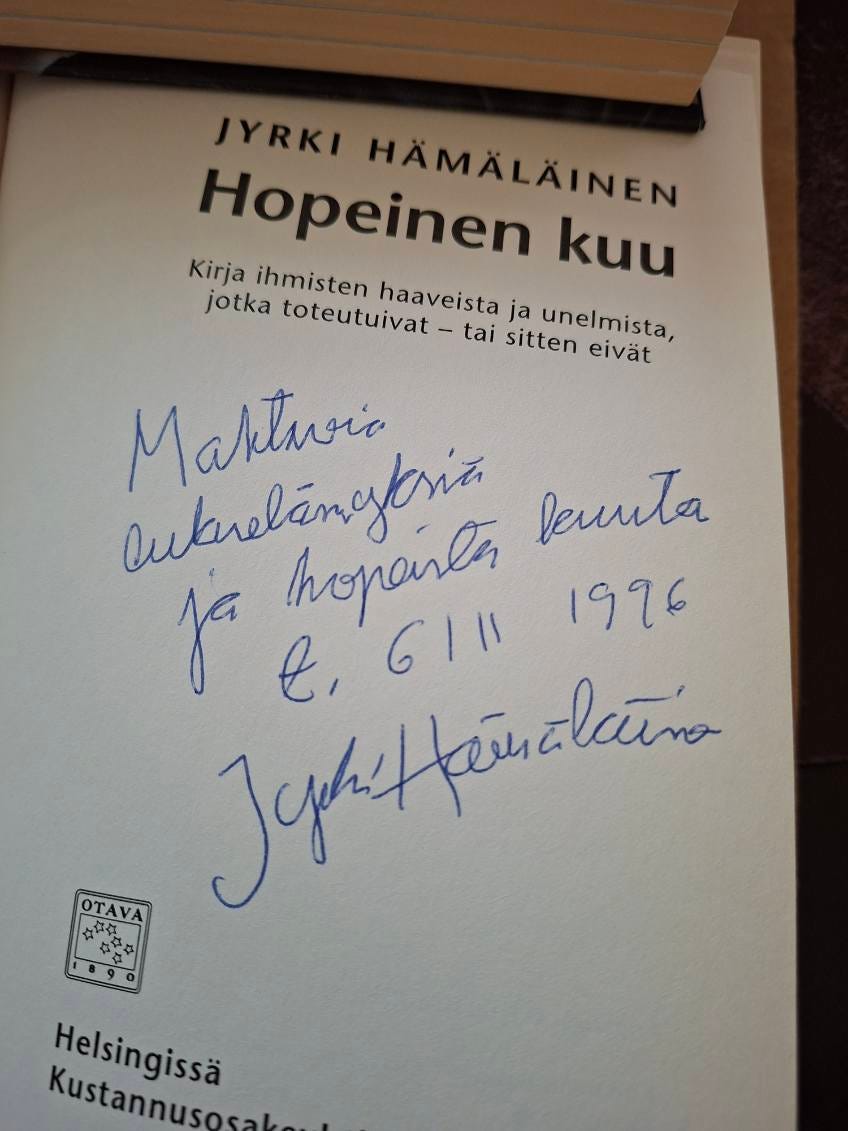 JYRKI HÄMÄLÄINEN
Hopeinen kuu
Kirja ihmisten haaveista ja unelmista,
jotka toteutuivat – tai sitten eivät
Maktuvia
lukuelämyksiä
ja hopeista kuuta
t. 6/11 1996
Jyrki Hämäläinen
OTAVA
1890
Helsingissä